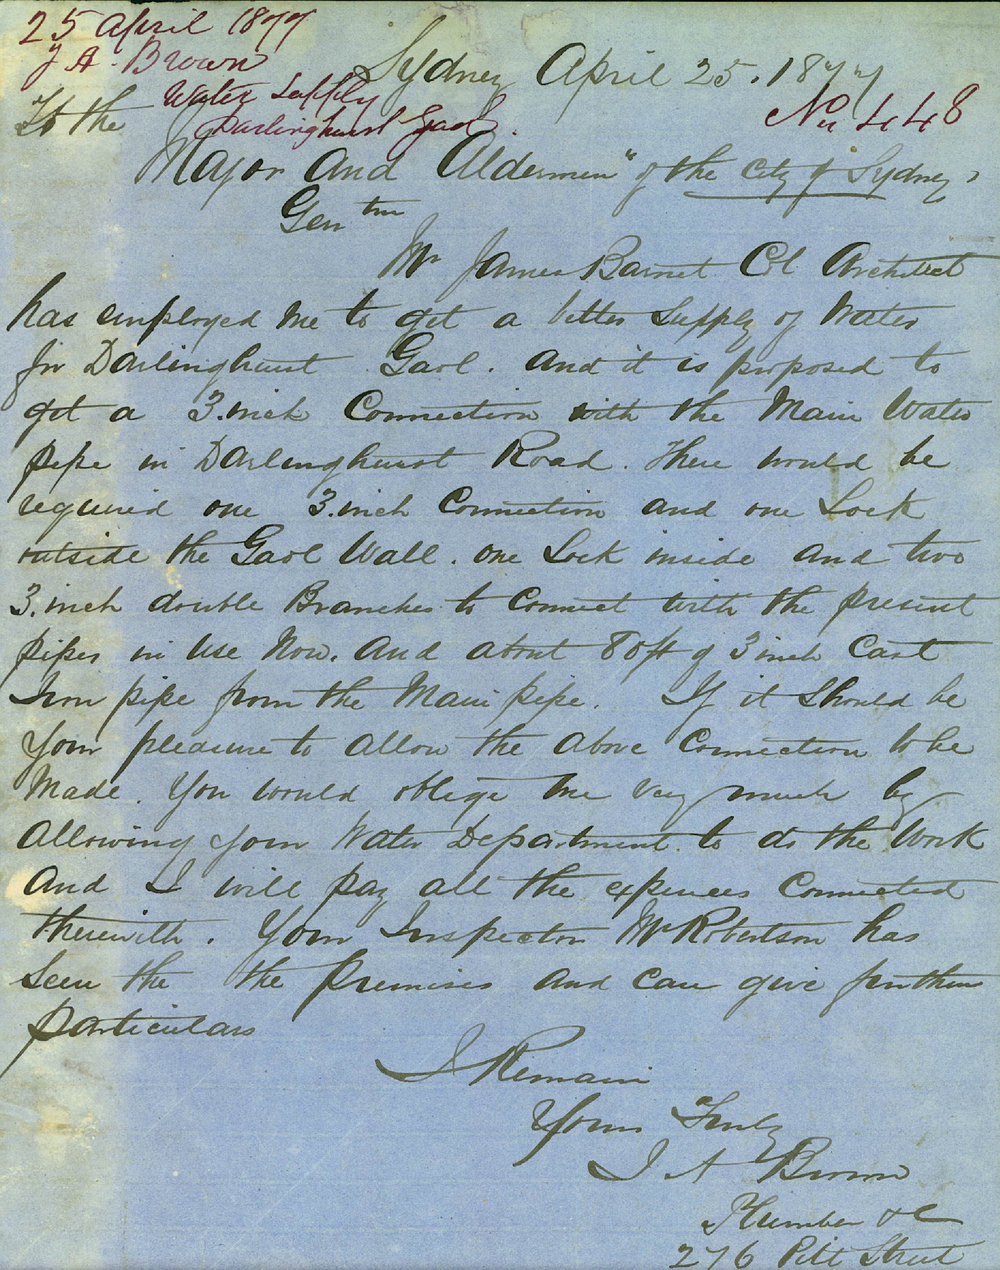 25 April 1877
J A. Brown
Water Supply
Darlinghurst Gaol.
No. 448
Sydney April 25. 1877
To the
Mayor and "Aldermen" of the City of Sydney,
Gentmn
Mr James Barnet Col Architect
has employed me to get a better supply of Water
for Darlinghurst Gaol. and it is proposed to
get a 3.inch Connection with the Main Water
pipe in Darlinghurst Road. There would be
required one 3.inch Connection and one Lock
outside the Gaol Wall. one Lock inside and two
3.inch double Branches to Connect with the present
pipes in Use Now. And about 80ft of 3 inch Cast
Iron pipe from the Main pipe. If it should be
Your pleasure to allow the above Connection to be
Made. You would oblige me very much by
allowing your Water Department to do the Work
And I will pay all the expences Connected
therewith. Your Inspector Mr Robertson has
seen the the Premises and can give further
particulars
I Remain
Yours Truly
J A Brown
Plumber &c
276 Pitt Street